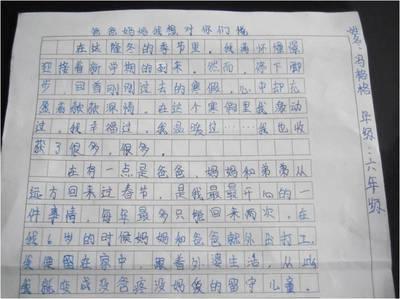 爸爸妈妈我想对你们说
在这隆冬的季节里，我满怀憧憬
迎接着新学期的到来。然而，停下脚
步，回首刚刚过去的寒假，心中却充
满着脉脉深情。在这个寒假里我感动
过，我幸福过，我品味过……我也收
获了很多，很多。
在有一点是爸爸，妈妈和弟弟从
远方回来过春节，是我最最开心的一
件事情，每年最多只能回来两次，在
我6岁的时候妈妈和爸爸就外出打工。
我便留在家中，跟着外婆生活，从此
我就变成没爸疼没妈爱的留守儿童。
姓名：冯格格 年级：六年级